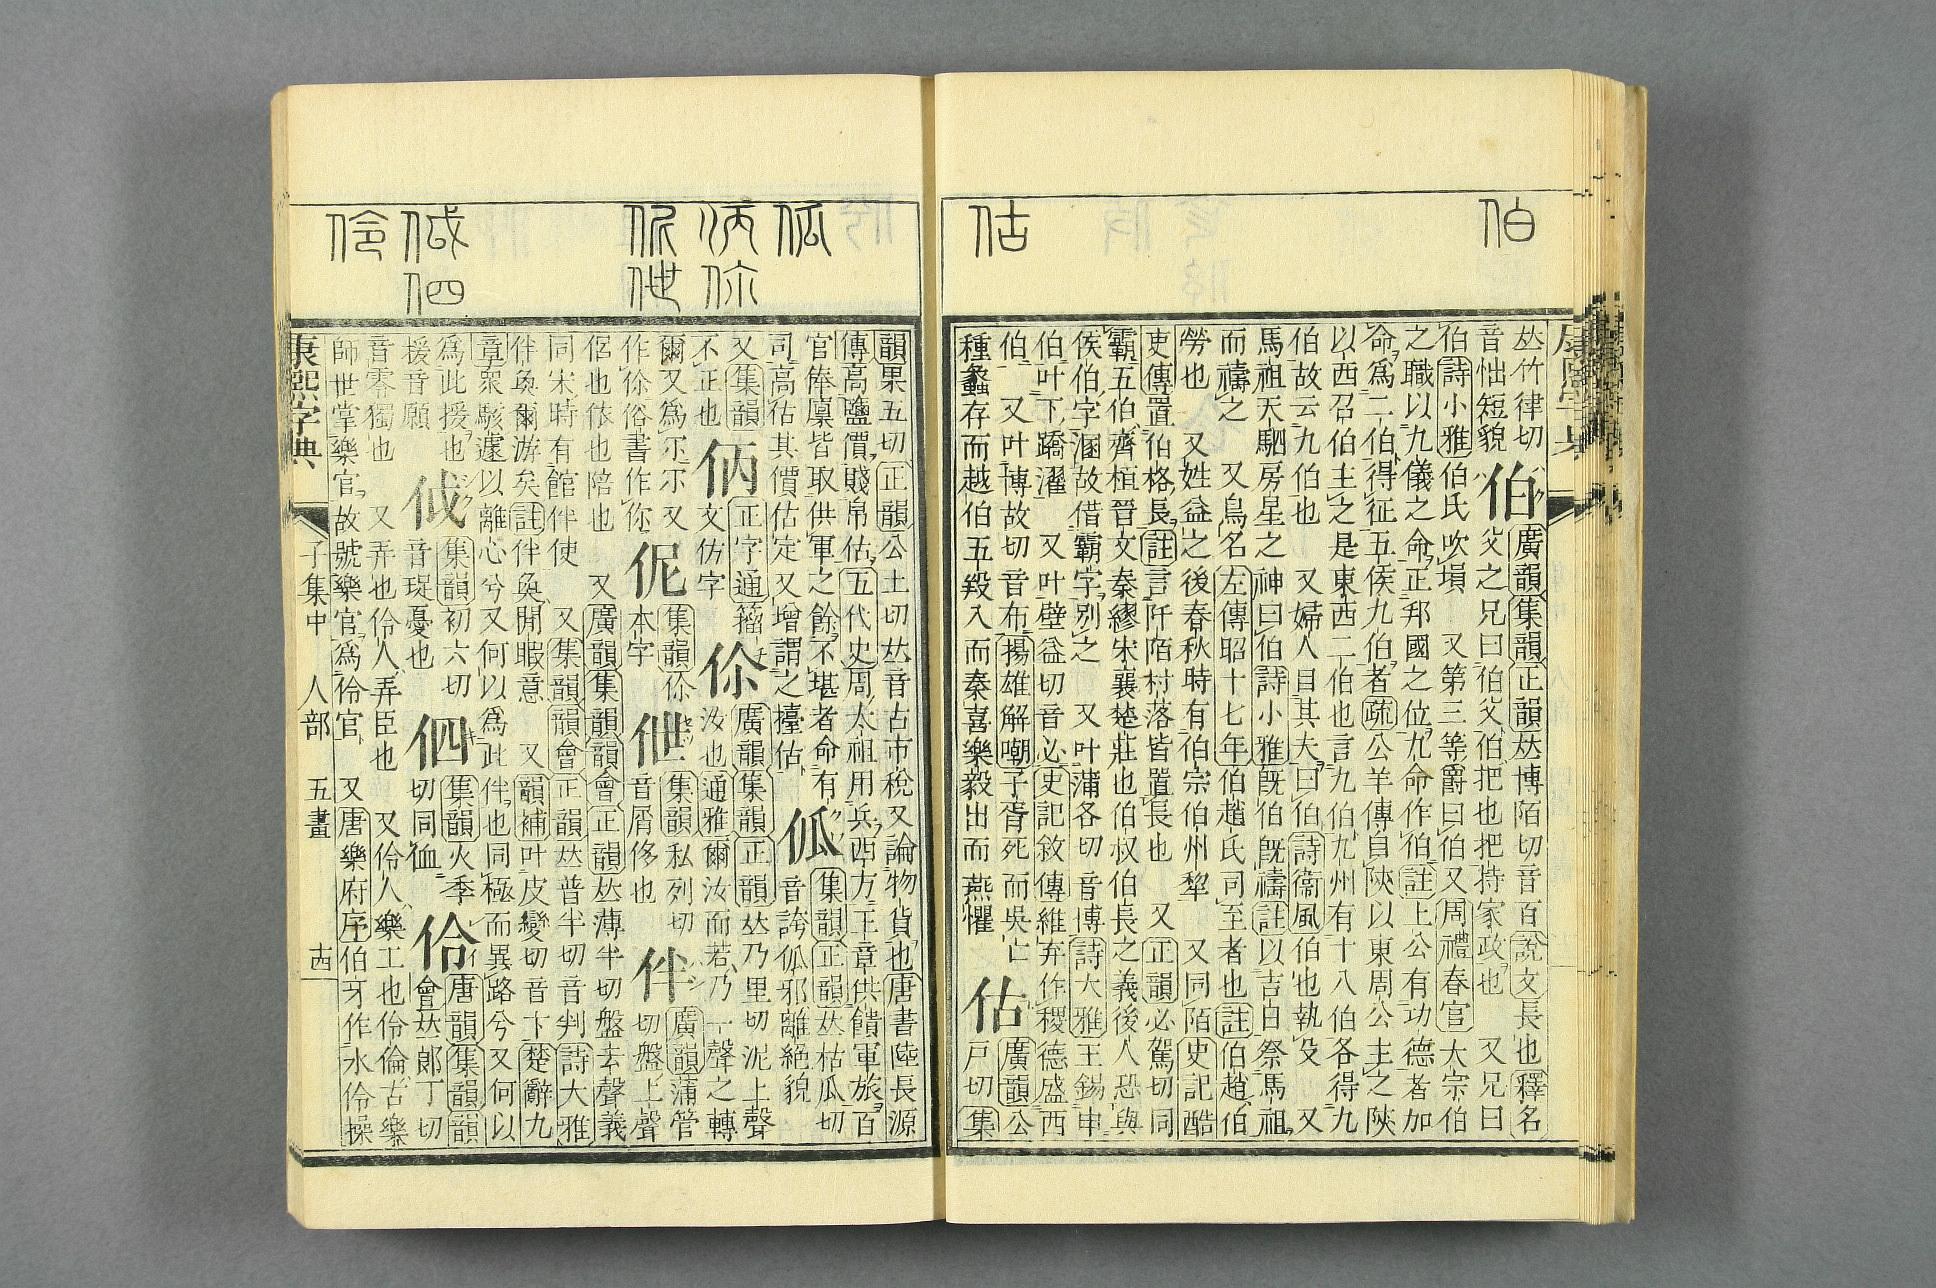 伯
估
康熙字典
𠀤竹律切
音怞短貌
伯
廣韻集韻正韻𠀤博陌切音百說文長也釋名
父之兄曰伯父伯把也把持家政也 又兄曰
伯詩小雅伯氏吹塤 又第三等爵曰伯又周禮春官大宗伯
之職以九儀之命正邦國之位九命作伯註上公有功德者加
命爲二伯得征五侯九伯者疏公羊傳自陝以東周公主之陝
以西召伯主之是東西二伯也言九伯九州有十八伯各得九
伯故云九伯也 又婦人目其夫曰伯詩衞風伯也執殳 又
馬祖天駟房星之神曰伯詩小雅旣伯旣禱註以吉日祭馬祖
而禱之 又鳥名左傳昭十七年伯趙氏司至者也註伯趙伯
勞也 又姓益之後春秋時有伯宗伯州犂 又同陌史記酷
吏傳置伯格長註言阡陌村落皆置長也 又正韻必駕切同
霸五伯齊桓晉文秦繆宋襄楚莊也伯叔伯長之義後人恐與
侯伯字溷故借霸字別之 又叶蒲各切音博詩大雅王錫申
伯叶下蹻濯 又叶壁益切音必史記敘傳維弃作稷德盛西
伯 又叶博故切音布揚雄解嘲子胥死而吳亡
種蠡存而越伯五羖入而秦喜樂毅出而燕懼
估
廣韻公
戸切集
韻果五切正韻公土切𠀤音古市稅又論物貨也唐書陸長源
傳高鹽價賤帛估五代史周太祖用兵西方王章供饋軍旅百
官俸廩皆取供軍之餘不堪者命有
司高估其價估定又增謂之擡估
㐴
集韻正韻𠀤枯瓜切
音誇㐴邪離絕貌
又集韻
不正也
㑂
正字通籀
文仿字
伱
廣韻集韻正韻𠀤乃里切泥上聲
汝也通雅爾汝而若乃一聲之轉
爾又爲尒尒又
作伱俗書作你
伲
集韻伱
本字
伳
集韻私列切
音屑侈也
伴
廣韻蒲管
切盤上聲
侶也依也陪也 又廣韻集韻韻會正韻𠀤薄半切盤去聲義
同宋時有館伴使 又集韻韻會正韻𠀤普半切音判詩大雅
伴奐爾游矣註伴奐閒暇意 又韻補叶皮變切音卞楚辭九
章衆駭遽以離心兮又何以爲此伴也同極而異路兮又何以
爲此援也
援音願
集韻初六切
音琡憂也
伵
集韻火季
切同侐
伶
唐韻集韻韻
會𠀤郞丁切
音零獨也 又弄也伶人弄臣也 又伶人樂工也伶倫古樂
師世掌樂官故號樂官爲伶官 又唐樂府序伯牙作水伶操
康熙字典 子集中 人部 五畫 十四